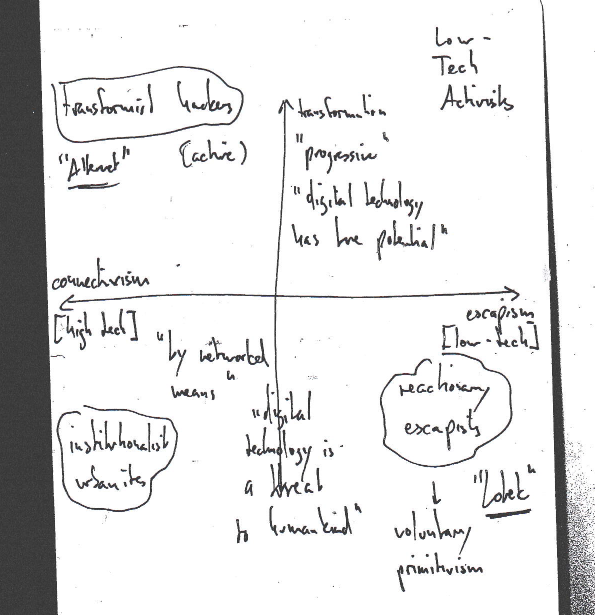 Low-
Tech
Activists
transformist hackers
"Alternet" (active)
transformation
"progressive"
"digital technology
has true potential"
connectivism
[high tech]
escapism
[low-tech]
"by networked
means"
reactionary
escapists
institutionalist
urbanites
"digital
technology is
a threat
to humankind"
"Lotek"
voluntary
primitivism